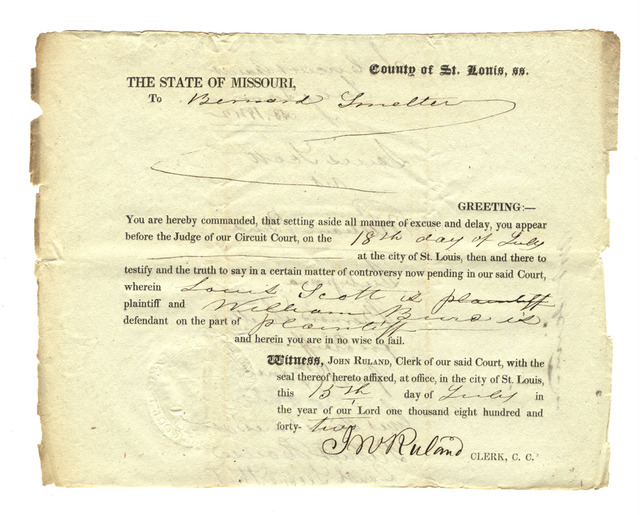 County of St. Louis, ss.
THE STATE OF MISSOURI,
To Bernard Smelter
GREETING:—
You are hereby commanded, that setting aside all manner of excuse and delay, you appear
before the Judge of our Circuit Court, on the 18th day of July
at the city of St. Louis, then and there to
testify and the truth to say in a certain matter of controversy now pending in our said Court,
wherein Louis Scott is plaintiff
plaintiff and William Burd is
defendant on the part of plaintiff
and herein you are in no wise to fail.
Witness, JOHN RULAND, Clerk of our said Court, with the
seal thereof hereto affixed, at office, in the city of St. Louis,
this 15th day of July in
the year of our Lord one thousand eight hundred and
forty-two
J W Ruland CLERK, C. C.